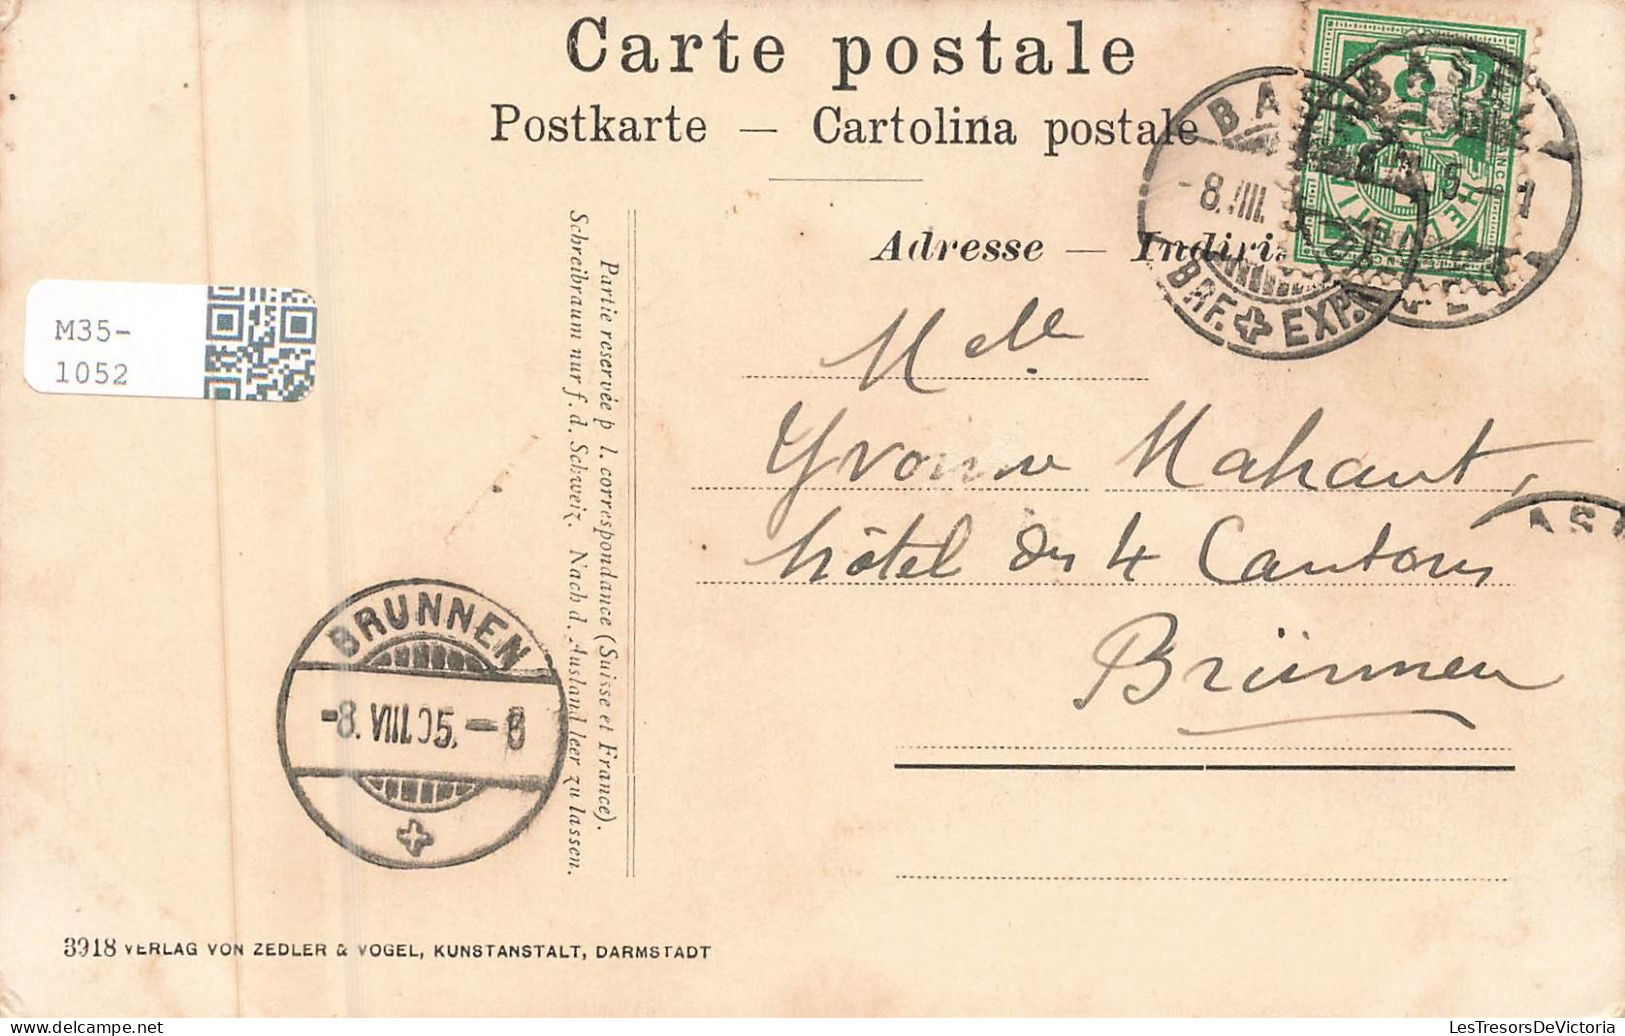 Carte postale
Postkarte — Cartolina postale
Adresse — Indiri
BAS
-8. VIII.
BRF. EXP.
HELVETIA
M35-
1052
Partie reservée p l. correspondance (Suisse et France).
Schreibraum nur f. d. Schweiz. Nach d. Ausland leer zu lassen.
Melle
Yvonne Mahaut,
hôtel des 4 Cantons
Brünnen
BRUNNEN
-8. VIII.05. -8
3918 VERLAG VON ZEDLER & VOGEL, KUNSTANSTALT, DARMSTADT
LesTresorsDeVictoria